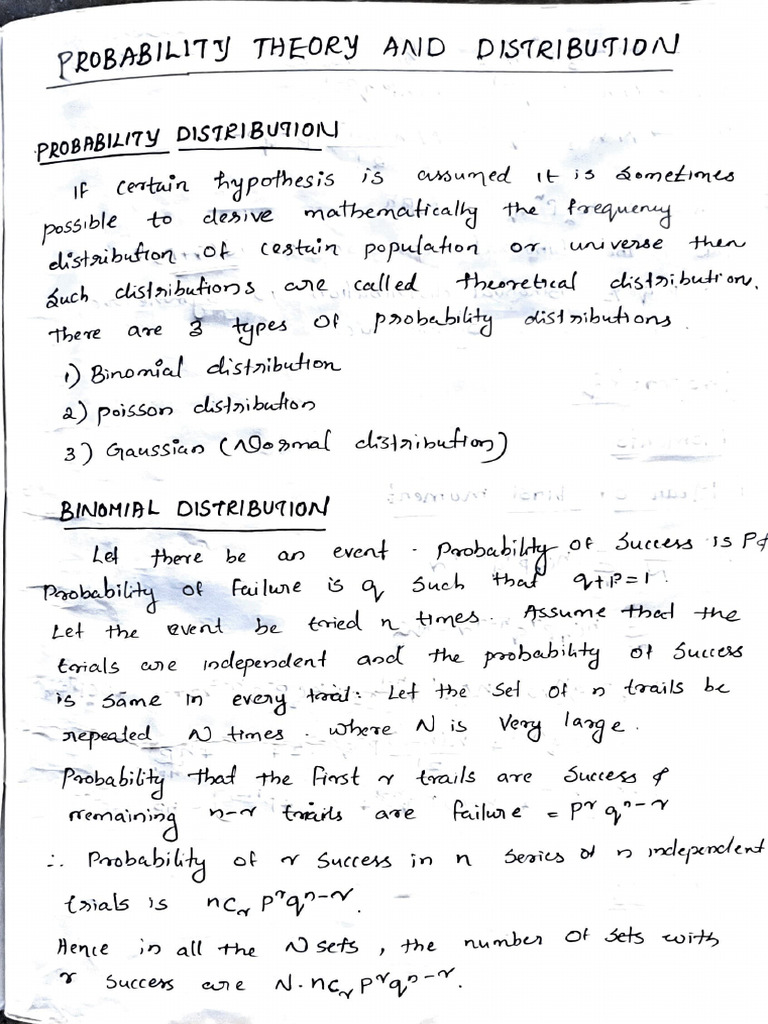 PROBABILITY THEORY AND DISTRIBUTION
PROBABILITY DISTRIBUTION
If certain hypothesis is assumed it is sometimes
possible to derive mathematically the frequency
distribution of certain population or universe then
such distributions are called theoretical distribution.
There are 3 types of probability distributions
1) Binomial distribution
2) poisson distribution
3) Gaussian (Normal distribution)
BINOMIAL DISTRIBUTION
Let there be an event. Probability of success is P &
Probability of failure is q such that q+P=1.
Let the event be tried n times. Assume that the
trials are independent and the probability of success
is same in every trial. Let the set of n trails be
repeated N times. where N is very large.
Probability that the first r trails are success &
remaining n-r trials are failure = pʳqⁿ⁻ʳ
∴ Probability of r success in n series of n independent
trials is nCᵣ pʳqⁿ⁻ʳ.
Hence in all the N sets, the number of sets with
r success are N. nCᵣ pʳqⁿ⁻ʳ.